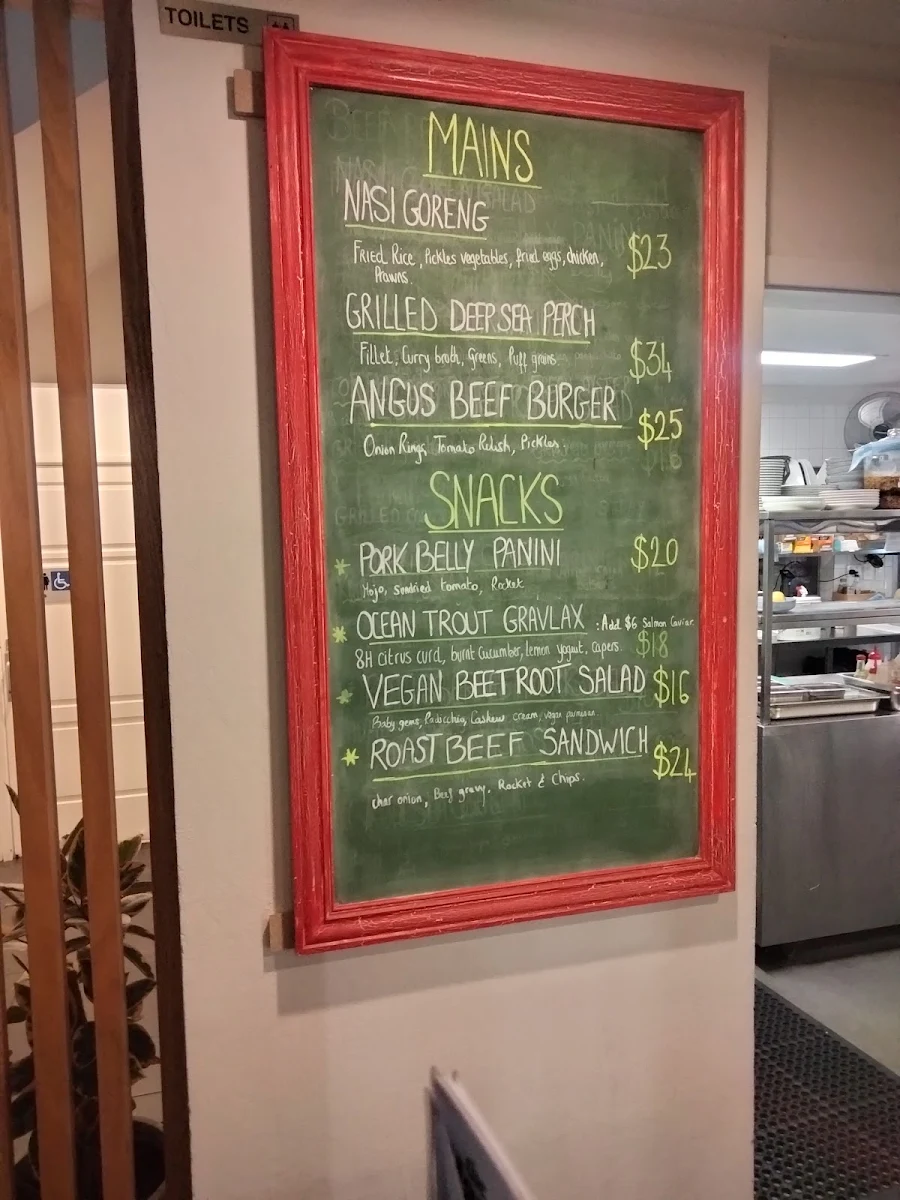 TOILETS
MAINS
NASI GORENG
Fried Rice, Pickles vegetables, fried eggs, chicken, $23
Prawns.
GRILLED DEEP SEA PERCH
Fillet, Curry broth, Greens, Puff grains. $34
ANGUS BEEF BURGER $25
Onion Rings, Tomato Relish, Pickles.
SNACKS
* PORK BELLY PANINI $20
Mojo, sundried tomato, Rocket
* OCEAN TROUT GRAVLAX : Add $6 Salmon Caviar.
8H citrus curd, burnt cucumber, lemon yogurt, capers. $18
* VEGAN BEETROOT SALAD $16
Baby gems, Cashew cream, vegan parmesan
* ROAST BEEF SANDWICH $24
char onion, Beef gravy, Rocket & Chips.